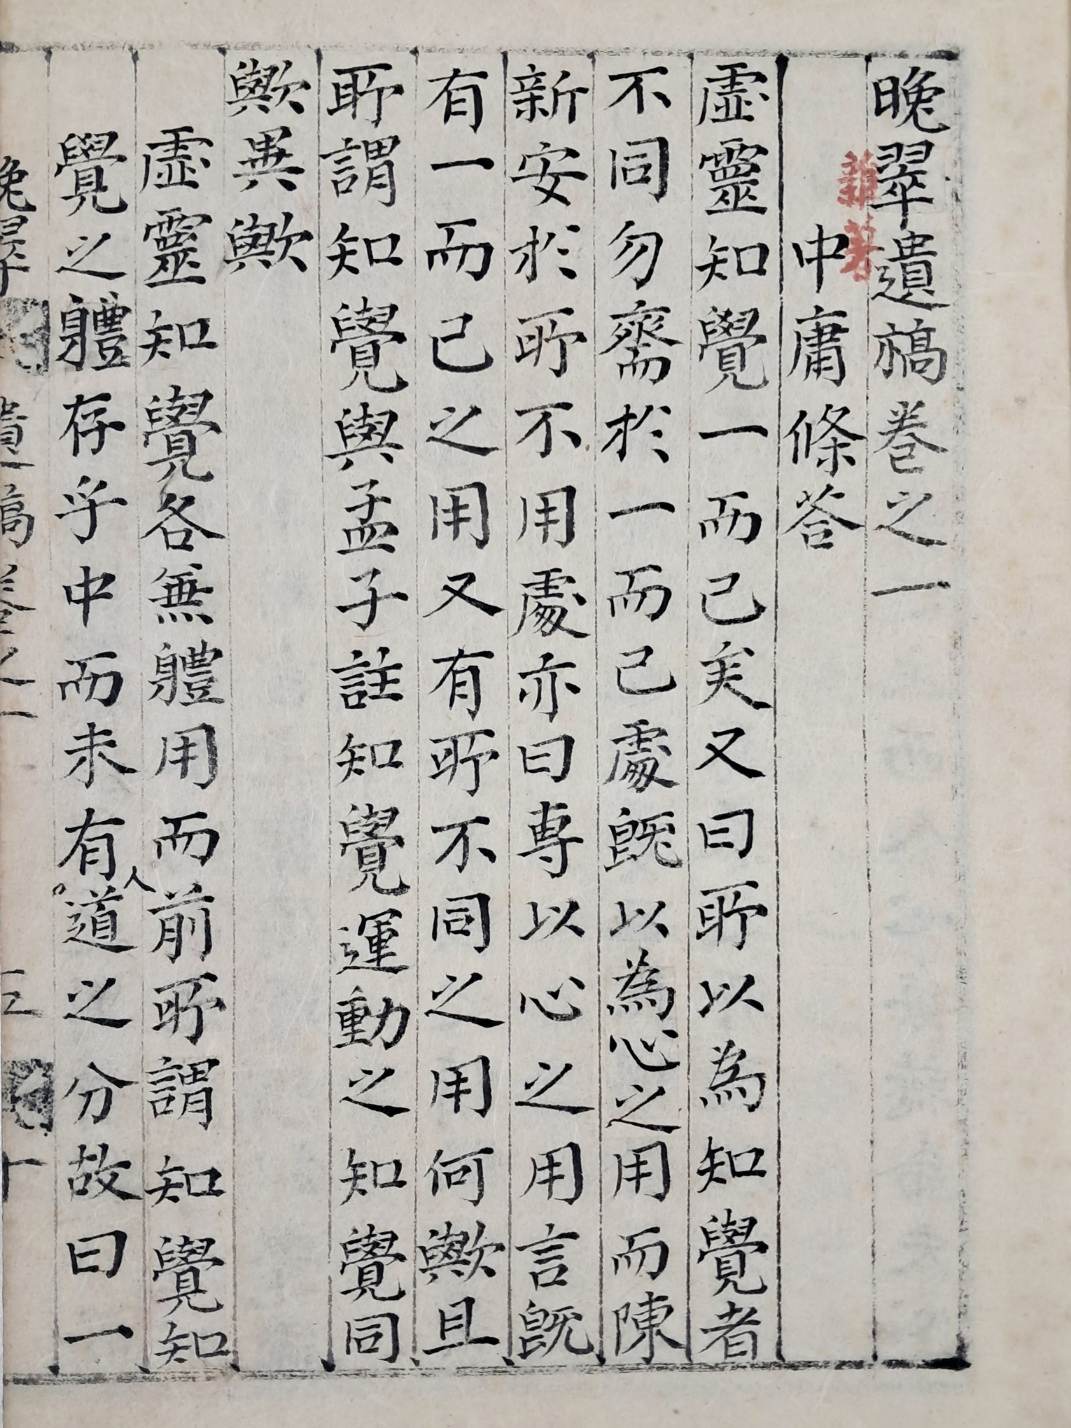 晚翠遺稿卷之一
雜著
中庸條答
虛靈知覺一而已矣又曰所以為知覺者
不同勿齋於一而已處旣以為心之用而陳
新安於所不同處亦曰專以心之用言旣
有一而已之用又有所不同之用何歟且
所謂知覺與孟子註知覺運動之知覺同
歟異歟
虛靈知覺各無體用而前所謂知覺知
覺之體存乎中而未有道人之分故曰一
晚翠 遺稿卷之一 五 十